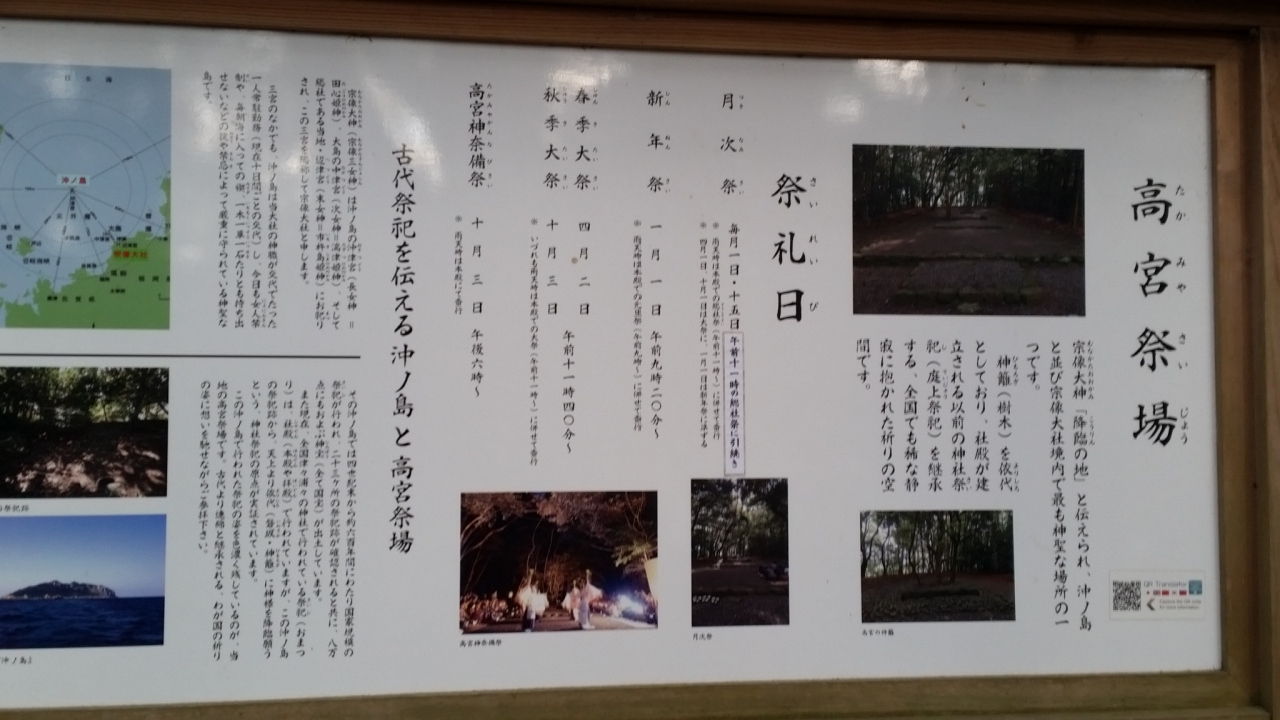 高宮祭場
たかみやさいじょう
宗像大神「降臨の地」と伝えられ、沖ノ島
と並び宗像大社境内で最も神聖な場所の一
つです。
神籬(樹木)を依代
としており、社殿が建
立される以前の神社祭
祀(庭上祭祀)を継承
する、全国でも稀な静
寂に抱かれた祈りの空
間です。
高宮の神籬
QR Translator
祭礼日
さいれいび
月次祭
毎月一日・十五日 午前十一時の総社祭に引続き
※ 雨天時は本殿での総社祭(午前十一時〜)に併せて斎行
※ 四月一日、十月一日は大祭に、一月一日は新年祭に承する
新年祭
一月一日 午前九時二〇分〜
春季大祭
四月二日
秋季大祭
十月三日
午前十一時四〇分〜
※ いづれも雨天時は本殿での大祭(午前十一時〜)に併せて斎行
高宮神奈備祭
十月三日 午後六時〜
※ 雨天時は本殿にて斎行
月次祭
高宮神奈備祭
古代祭祀を伝える沖ノ島と高宮祭場
宗像大神(宗像三女神)は沖ノ島の沖津宮(長女神=
田心姫神)、大島の中津宮(次女神=湍津姫神)、そして
総社である当地・辺津宮(末女神=市杵島姫神)にお祀り
され、この三宮を総称して宗像大社と申します。
三宮のなかでも、沖ノ島は当大社の神職が交代でたった
一人常駐勤務(現在十日間ごとの交代)し、今日も女人禁
制や、毎朝海に入っての禊、一木一草一石たりとも持ち出
せないなどの掟や禁忌によって厳重に守られている神聖な
島です。
その沖ノ島では四世紀末から約六百年間にわたり国家規模の
祭祀が行われ、二十三ヶ所の祭祀跡が確認されると共に、八万
点にもおよぶ神宝(全て国宝)が出土しています。
また現在、全国津々浦々の神社で行われている祭祀(おまつ
り)は、社殿(本殿や拝殿)で行われていますが、この沖ノ島
の祭祀跡から、天上より依代(磐座・神籬)に神様を降臨願う
という、神社祭祀の原点が実証されています。
この沖ノ島で行われた祭祀の姿を色濃く残しているのが、当
地の高宮祭場です。古代より連綿と継承される、わが国の祈り
の姿に想いを馳せながらご参拝下さい。
日本海
沖ノ島
宗像大社
祭祀跡
沖ノ島